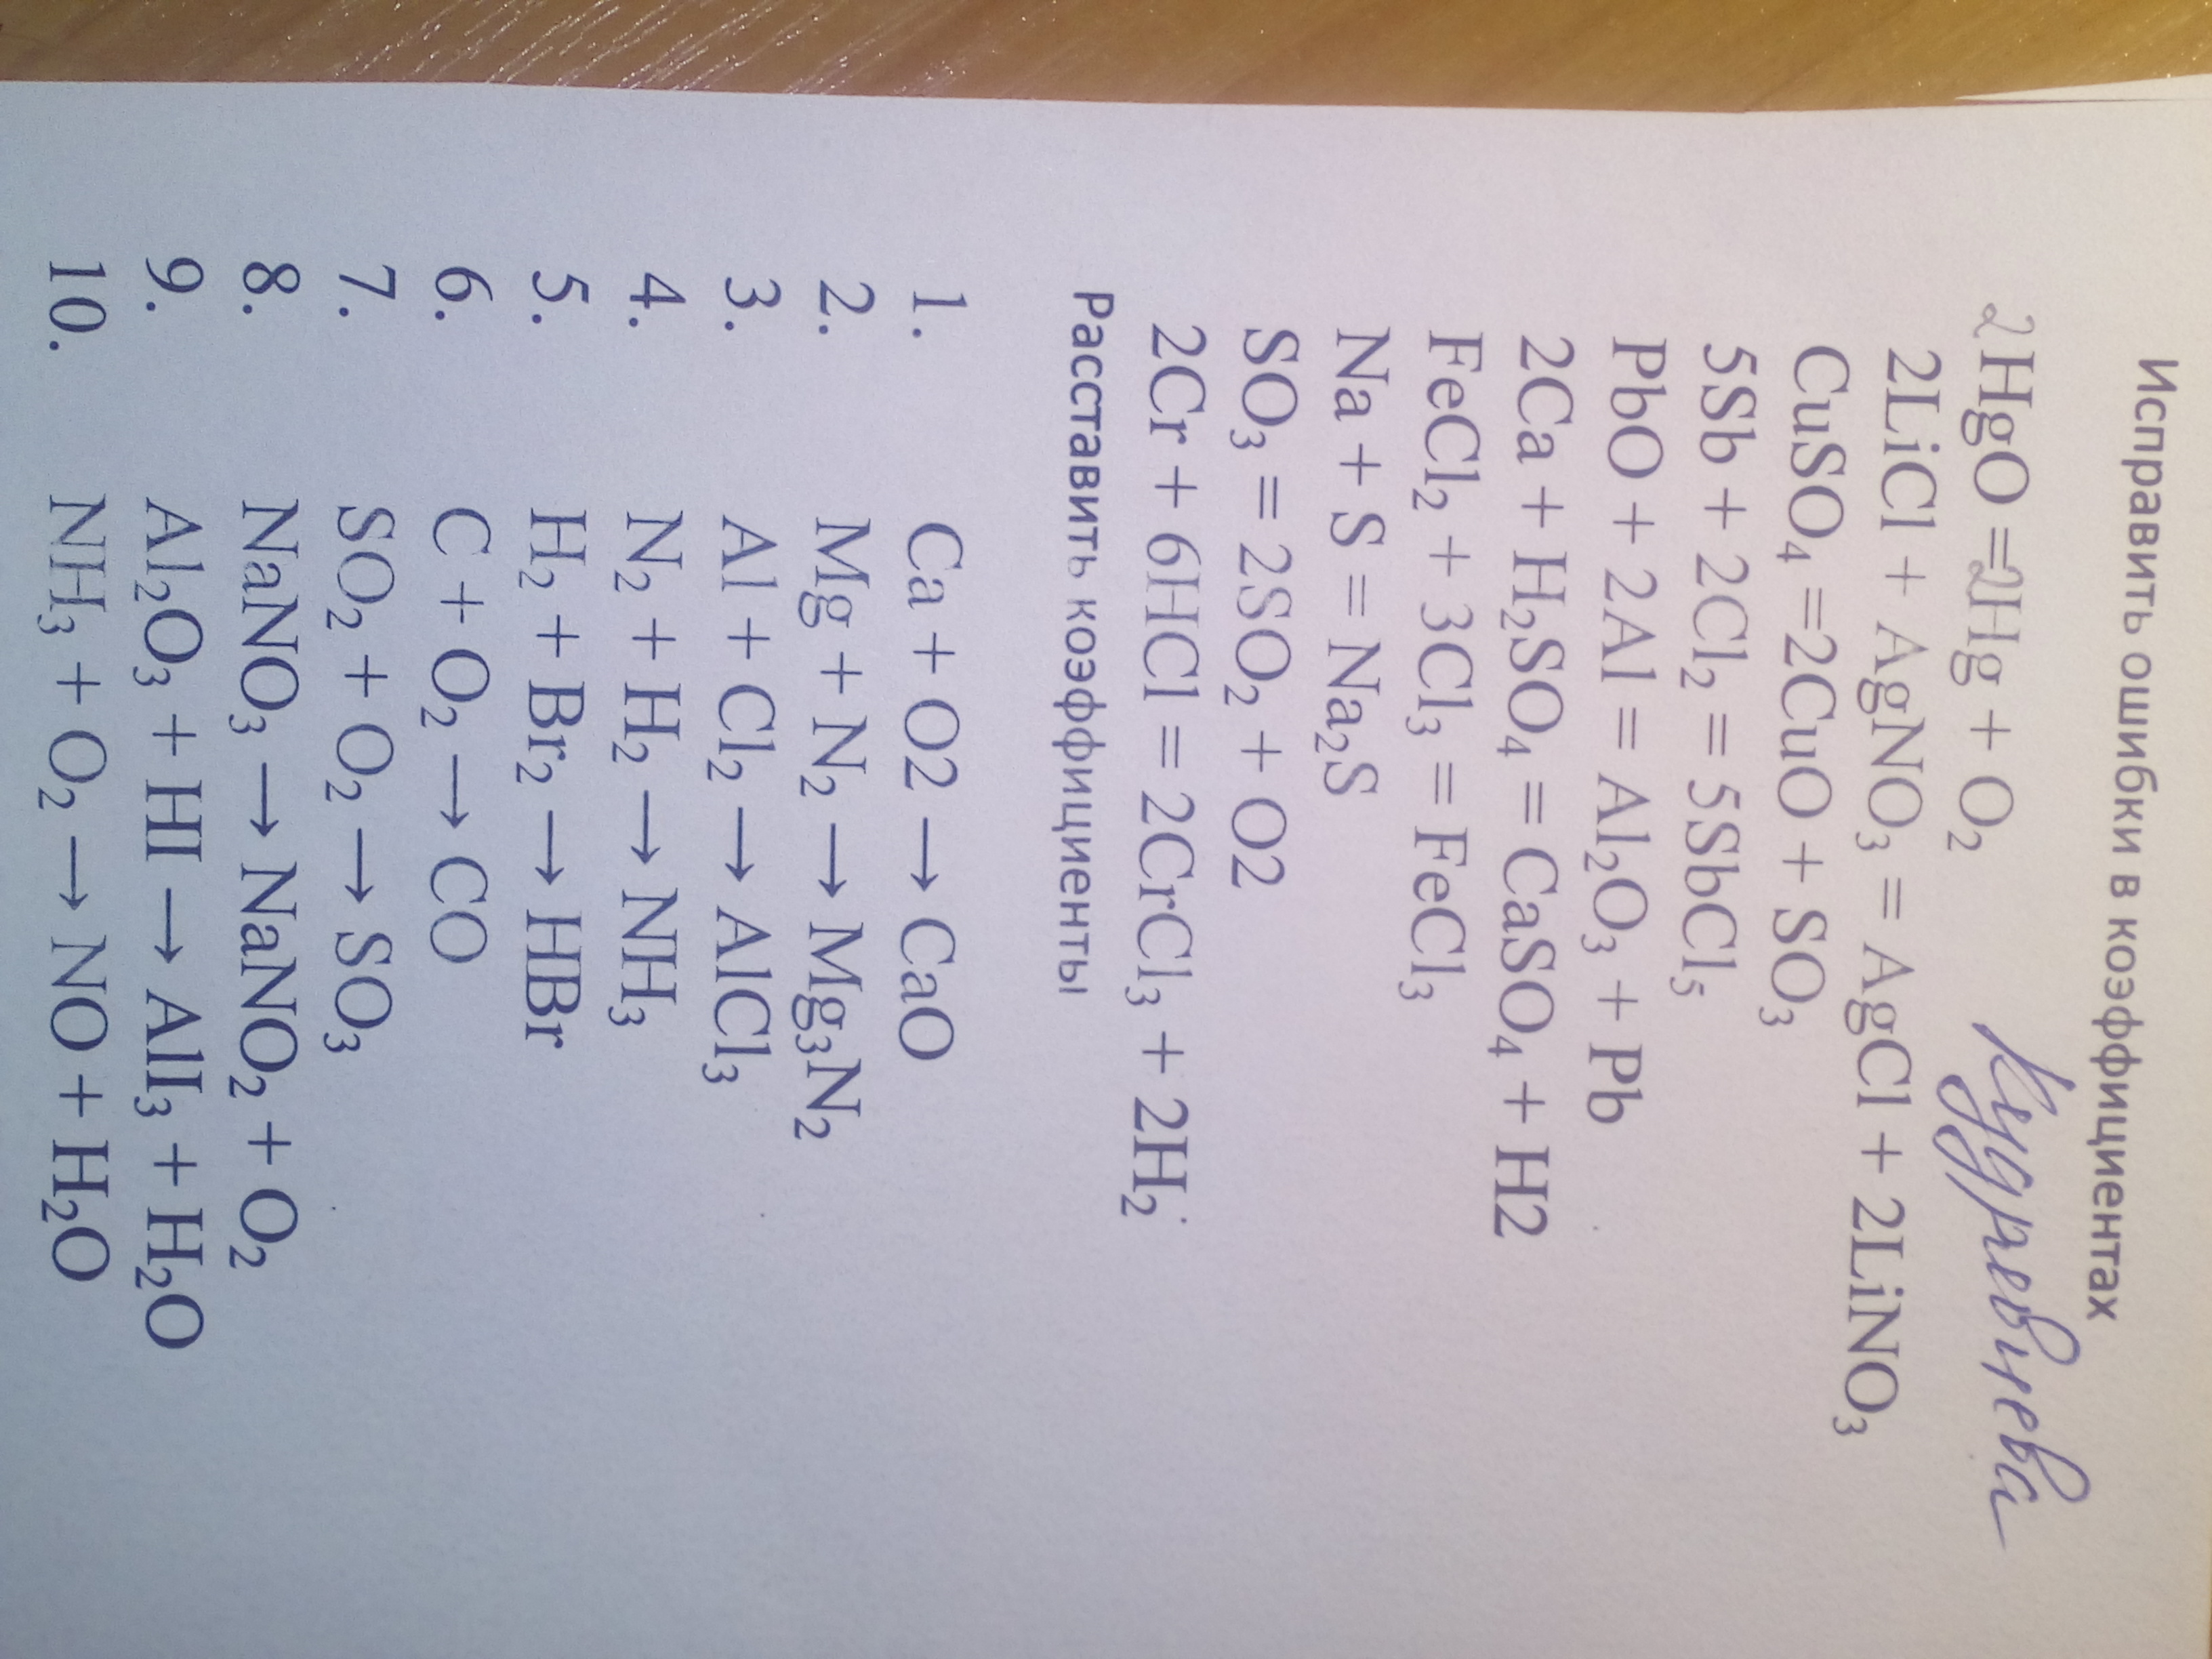 Исправить ошибки в коэффициентах
2HgO =2Hg + O₂
2LiCl + AgNO₃ = AgCl + 2LiNO₃
CuSO₄ =2CuO + SO₃
5Sb + 2Cl₂ = 5SbCl₅
PbO + 2Al = Al₂O₃ + Pb
2Ca + H₂SO₄ = CaSO₄ + H2
FeCl₂ + 3Cl₃ = FeCl₃
Na + S = Na₂S
SO₃ = 2SO₂ + O2
2Cr + 6HCl = 2CrCl₃ + 2H₂
Расставить коэффициенты
1. Ca + O2 → CaO
2. Mg + N₂ → Mg₃N₂
3. Al + Cl₂ → AlCl₃
4. N₂ + H₂ → NH₃
5. H₂ + Br₂ → HBr
6. C + O₂ → CO
7. SO₂ + O₂ → SO₃
8. NaNO₃ → NaNO₂ + O₂
9. Al₂O₃ + HI → AlI₃ + H₂O
10. NH₃ + O₂ → NO + H₂O